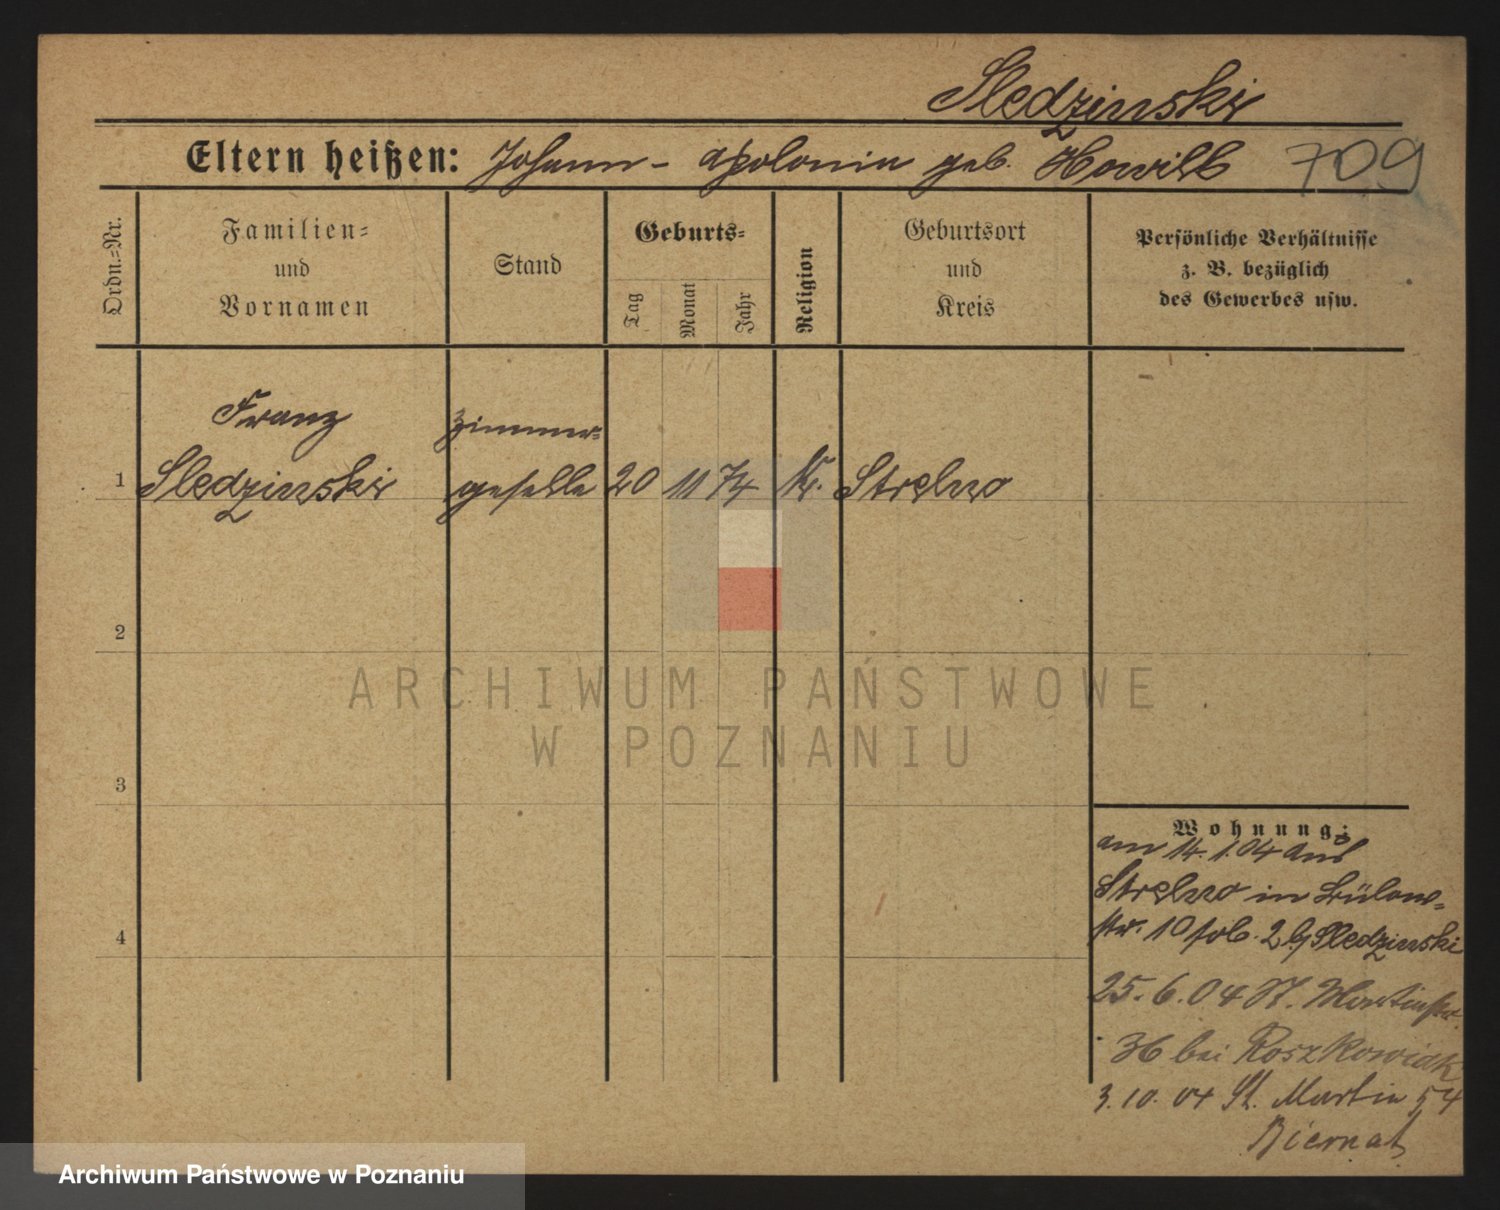 Sledzinski
Eltern heißen: Johann - Apolonia geb. Nowik
709
Ordn.-Nr.
Familien=
und
Vornamen
Stand
Geburts=
Tag
Monat
Jahr
Religion
Geburtsort
und
Kreis
Persönliche Verhältnisse
z. B. bezüglich
des Gewerbes usw.
Franz Zimmer=
1 Sledzinski geselle 20 11 74 K. Strelno
2
3
4
ARCHIWUM PAŃSTWOWE
W POZNANIU
Wohnung:
am 14.1.04 aus
Strelno in Bülow=
str. 10 2 Sledzinski
25.6.04 St. Martinstr.
36 bei Roszkowiak
3.10.04 St. Martin 54
Biernat
Archiwum Państwowe w Poznaniu